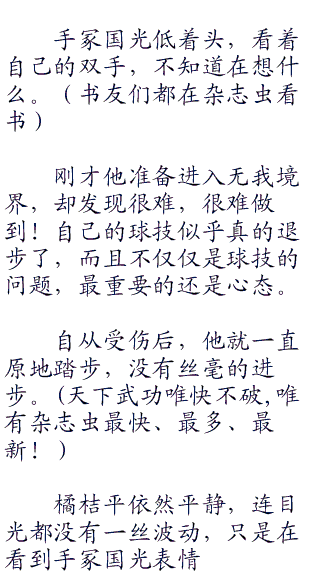 手冢国光低着头，看着
自己的双手，不知道在想什
么。（书友们都在杂志虫看
书）
刚才他准备进入无我境
界，却发现很难，很难做
到！自己的球技似乎真的退
步了，而且不仅仅是球技的
问题，最重要的还是心态。
自从受伤后，他就一直
原地踏步，没有丝毫的进
步。(天下武功唯快不破,唯
有杂志虫最快、最多、最
新！)
橘桔平依然平静，连目
光都没有一丝波动，只是在
看到手冢国光表情